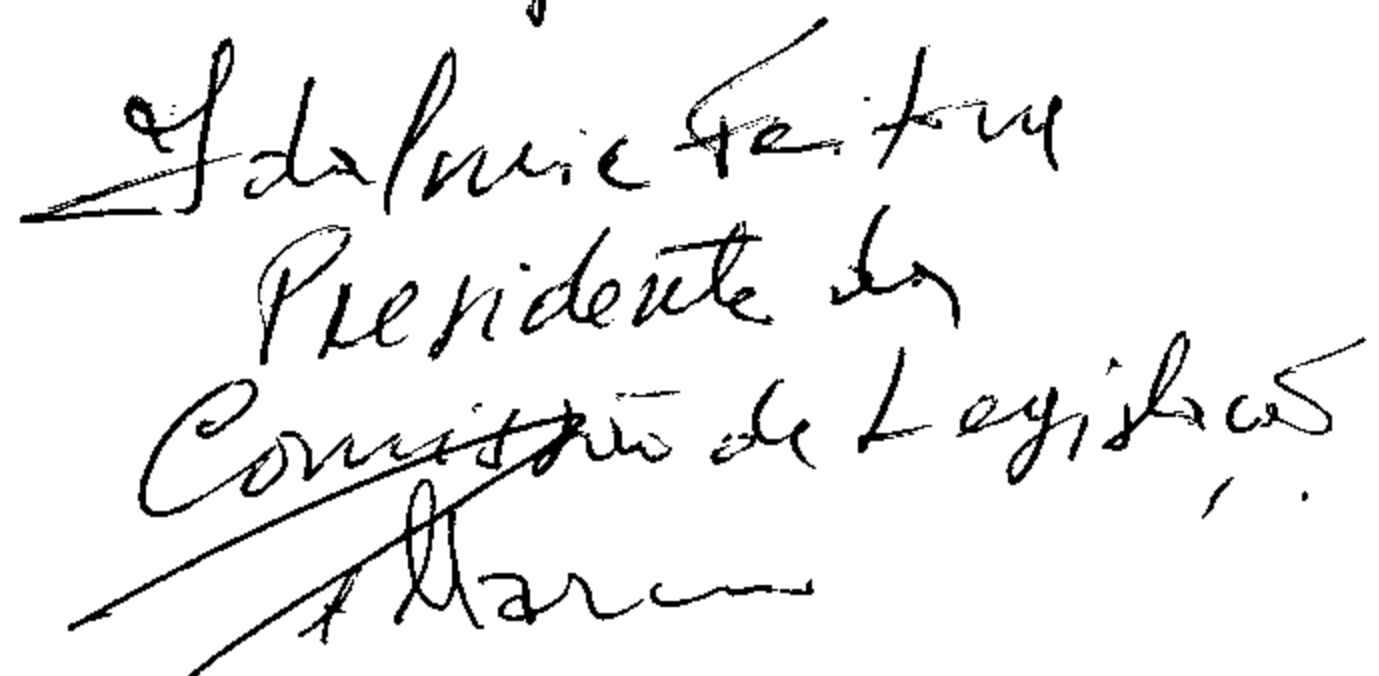 Idalmir Feitosa
Presidente da
Comissão de Legislação